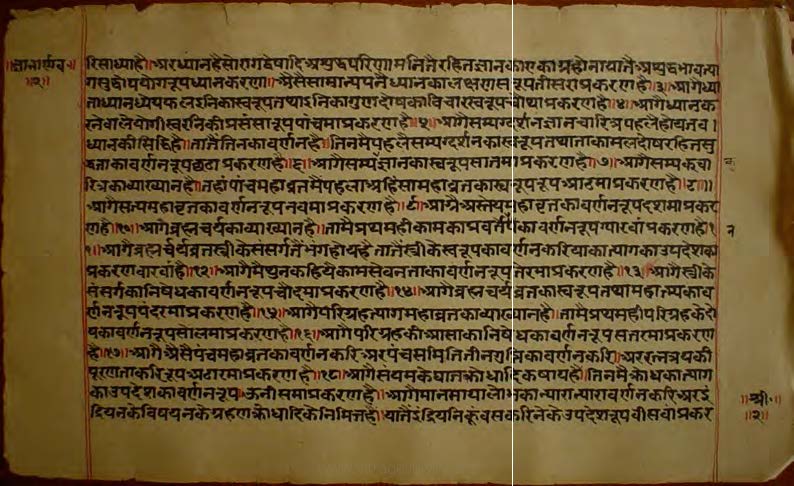 ॥ज्ञानार्णव॥
॥२॥
रिसाध्याहै॥ अरध्यानहैसोरागद्वेषादिअशुद्धपरिणामनितैरहितज्ञानका
गसुद्धोपयोगरूपध्यानकरणा॥ ऐसैसामान्यपनैध्यानकालक्षणस्वरूपतीसराप्रकरणहै॥३॥ आगैध्या
ताध्यानध्येयफलइनिकास्वरूपतथाइनिकागुणदोषकाविचारस्वरूपचौथाप्रकरणहै॥४॥ आगैध्यानक
रनेवालेयोगीस्वरनिकीप्रसंसारूपपांचमाप्रकरणहै॥५॥ आगैसम्यग्दर्शनज्ञानचारित्रपहलेहोयतव।
ध्यानकीसिद्धिहै॥ तातैंतिनकावर्णनहै॥ तिनमैपहलैसम्यग्दर्शनकास्वरूपतथाताकामलदोषरहितसु
द्धताकावर्णनरूपछठाप्रकरणहै॥६॥ आगैसम्यग्ज्ञानकास्वरूपसातमाप्रकरणहै॥७॥ आगैसम्यक्चा
रित्रकाव्याख्यानहै॥ तहांपांचमहाव्रतमैंपहलाअहिंसामहाव्रतकास्वरूपरूपआठमाप्रकरणहै॥८॥
आगैसत्यमहाव्रतकावर्णनरूपनवमाप्रकरणहै॥९॥ आगैअस्तेयमहाव्रतकावर्णनरूपदशमाप्रकर
णहै॥१०॥ आगैब्रह्मचर्यकाव्याख्यानहै॥ तामैप्रथमहीकामकाप्रवर्तनकावर्णनरूपग्यारवांप्रकरणहै॥१
१॥ आगैब्रह्मचर्यव्रतस्त्रीकेसंसर्गतैंभंगहोयहैतातैंस्त्रीकेस्वरूपकावर्णनकरियाकात्यागकाउपदेशका
प्रकरणवारवांहै॥१२॥ आगैमैथुनकहियेकामसेवनताकावर्णनरूपतेरमाप्रकरणहै॥१३॥ आगैस्त्रीके
संसर्गकानिषेधकावर्णनरूपचौदमाप्रकरणहै॥१४॥ आगैब्रह्मचर्यव्रतकास्वरूपतथामहात्म्यकाव
र्णनरूपपंदरमाप्रकरणहै॥१५॥ आगैपरिग्रहत्यागमहाव्रतकाव्याख्यानहै॥ तामैप्रथमहीपरिग्रहकेदो
षकावर्णनरूपसोलमाप्रकरणहै॥१६॥ आगैपरिग्रहकीआसाकानिषेधकावर्णनरूपसतरमाप्रकरण
है॥१७॥ आगैऐसैपंचमहाव्रतकावर्णनकरिअरपंचसमितितीनगुप्तिकावर्णनकरि॥ अररत्नत्रयकी
पूरणताकरिरूपअठारमाप्रकरणहै॥१८॥ आगैसंयमकेघातकक्रोधादिकषायहै॥ तिनमैक्रोधकात्याग
काउपदेशकावर्णनरूपऊनीसमाप्रकरणहै॥ आगैमानमायालोभकान्यारान्यारावर्णनकरिअरइं
द्रियनकेविषयनकेग्रहणक्रोधादिकेनिमित्तहै॥ यातैंइंद्रियनिकूंवसकरिनेकेउपदेशरूपवीसवांप्रकर
॥श्री॥
॥२॥